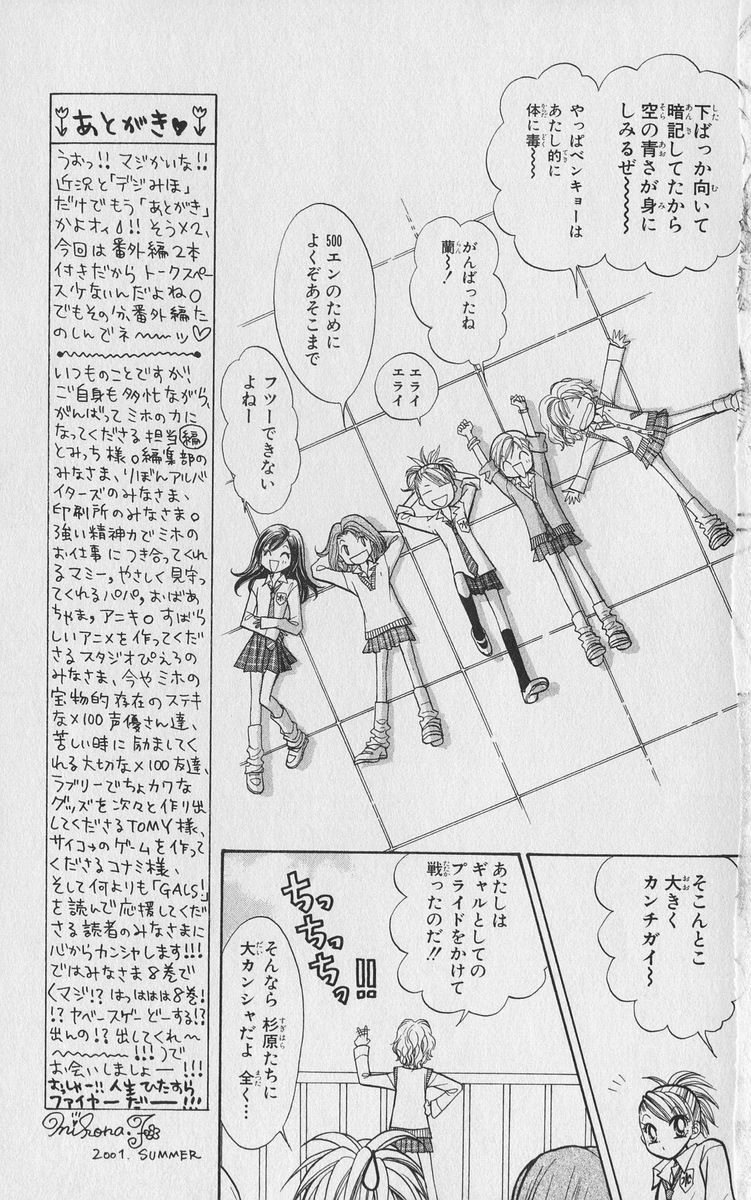 下ばっか向いて
暗記してたから
空の青さが身に
しみるぜ〜〜〜
やっぱベンキョーは
あたし的に
体に毒〜〜
がんばったね
蘭〜！
エライ
エライ
500エンのために
よくぞあそこまで
フツーできない
よねー
そこんとこ
大きく
カンチガイ〜
あたしは
ギャルとしての
プライドをかけて
戦ったのだ!!
ちっちっちっ!!
そんなら 杉原たちに
大カンシャだよ 全く…
あとがき♥
うおっ!! マジかいな!!
近況と「デジみほ」
だけでもう「あとがき」
かよオィ!! そう×2、
今回は番外編2本
付きだからトークスペー
ス少ないんだよね。
でもその分、番外編た
のしんでネ〜〜〜ッ♡
いつものことですが、
ご自身も多忙ながら、
がんばってミホの力に
なってくださる担当編
とみっち様。編集部の
みなさま、りぼんアルバ
イターズのみなさま、
印刷所のみなさま。
強い精神力でミホの
お仕事につき合ってくれ
るマミー,やさしく見守っ
てくれるパパ,おばあ
ちゃま,アニキ。すばら
しいアニメを作ってくだ
さるスタジオぴえろの
みなさま、今やミホの
宝物的存在のステキ
な×100声優さん達、
苦しい時に励ましてく
れる大切な×100友達、
ラブリーでちょカワな
グッズを次々と作り出
してくださるTOMY様、
サイコ→のゲームを作って
くださるコナミ様、
そして何よりも「GALS!」
を読んで応援してくださ
る読者のみなさまに
心からカンシャします!!!
ではみなさま8巻で
(マジ!? はっははは8巻!
!? ヤベースゲーどーする!?
出んの!? 出してくれ〜
〜〜〜〜!!!)で
お会いしましょー!!!
おっしゃー!! 人生ひたすら
ファイヤーだー!!!
Mihona.F
2001. SUMMER